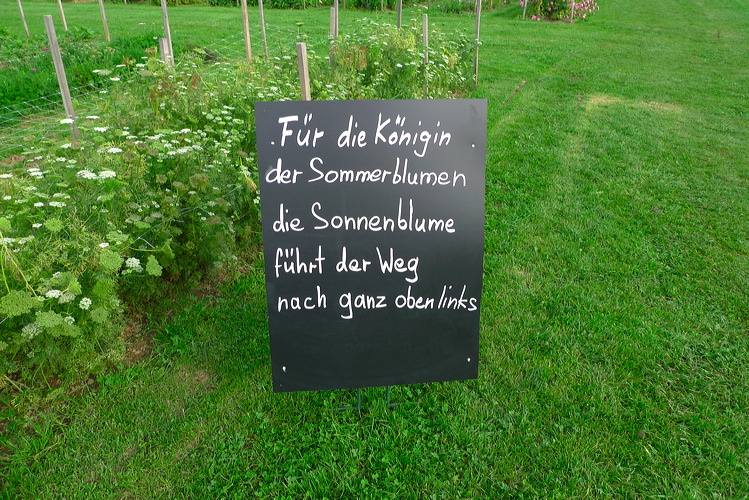 Für die Königin
der Sommerblumen
die Sonnenblume
führt der Weg
nach ganz oben links